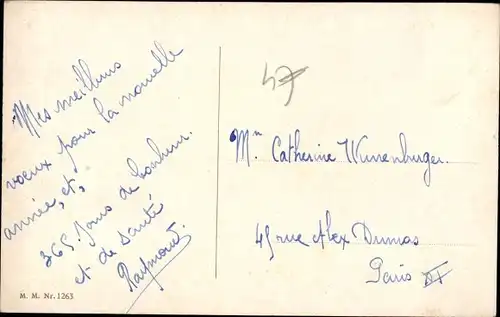 Mes meilleurs
voeux pour la nouvelle
année, et,
365 Jours de bonheur.
et de santé
Raymond.
47
Mn Catherine Wunenburger.
45 rue Alex Dumas
Paris XI
M. M. Nr. 1263